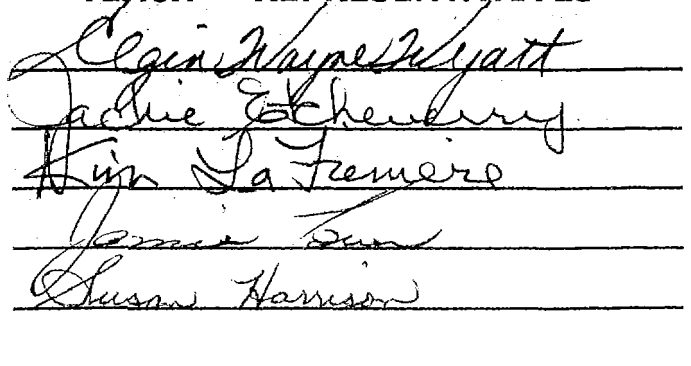 Elgin Wayne Wyatt
Jackie Etcheverry
Kim La Freniere
Jamie
Susan Harrison